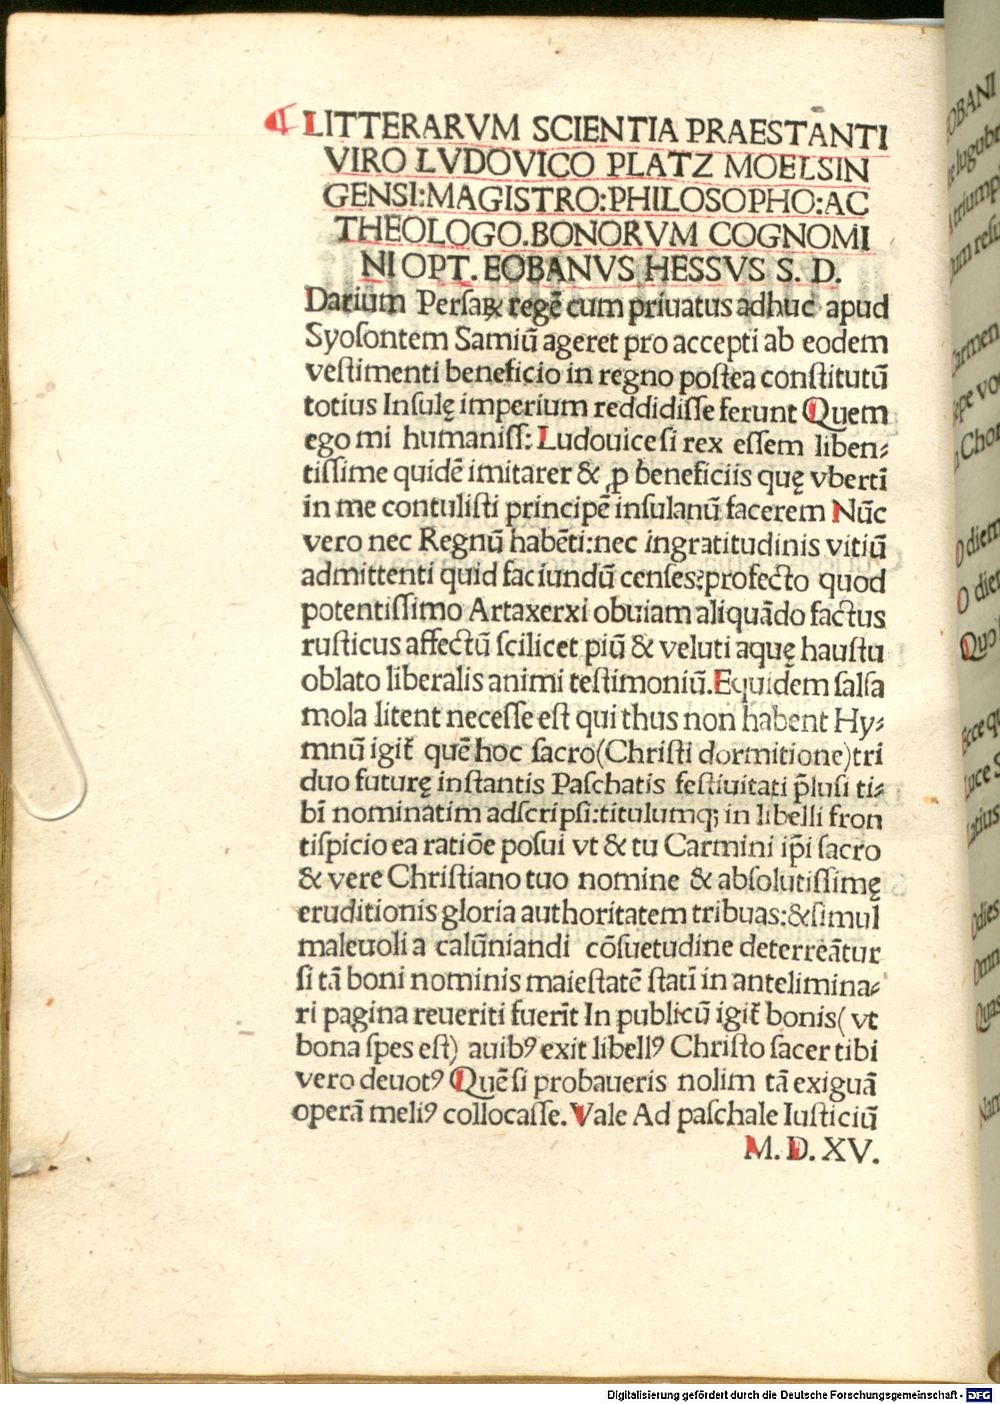 ¶ LITTERARVM SCIENTIA PRAESTANTI
VIRO LVDOVICO PLATZ MOELSIN
GENSI:MAGISTRO:PHILOSOPHO:AC
THEOLOGO.BONORVM COGNOMI
NI OPT. EOBANVS HESSVS S. D.
Darium Persaꝝ regē cum priuatus adhuc apud
Syoſontem Samiū ageret pro accepti ab eodem
veſtimenti beneficio in regno poſtea conſtitutū
totius Inſulę imperium reddidiſſe ferunt Quem
ego mi humaniſſ: Ludouice ſi rex eſſem liben⸗
tiſſime quidē imitarer & ꝓ beneficiis quę vberti
in me contuliſti principē inſulanū facerem Nūc
vero nec Regnū habēti:nec ingratitudinis vitiū
admittenti quid faciundū cenſes?profecto quod
potentiſſimo Artaxerxi obuiam aliquādo factus
ruſticus affectū ſcilicet piū & veluti aquę hauſtu
oblato liberalis animi teſtimoniū.Equidem ſalſa
mola litent neceſſe eſt qui thus non habent Hy⸗
mnū igit̃ quē hoc ſacro(Chriſti dormitione)tri
duo futurę inſtantis Paſchatis feſtiuitati p̄luſi ti⸗
bi nominatim adſcripſi:titulumqꝫ in libelli fron
tiſpicio ea ratiōe poſui vt & tu Carmini ip̄i ſacro
& vere Chriſtiano tuo nomine & abſolutiſſimę
eruditionis gloria authoritatem tribuas:&ſimul
maleuoli a calūniandi cōſuetudine deterreātur
ſi tā boni nominis maieſtatē ſtatī in antelimina⸗
ri pagina reueriti fuerīt In publicū igit̃ bonis( vt
bona ſpes eſt) auibꝰ exit libellꝰ Chriſto ſacer tibi
vero deuotꝰ Quē ſi probaueris nolim tā exiguā
operā meliꝰ collocaſſe. Vale Ad paſchale Iuſticiū
M. D. XV.
OBANI
Carmen
O diem
O die
Quo
Ecce q
Luce S
Latius
Odies
Omn
Quas
Nam
Digitalisierung gefördert durch die Deutsche Forschungsgemeinschaft - DFG